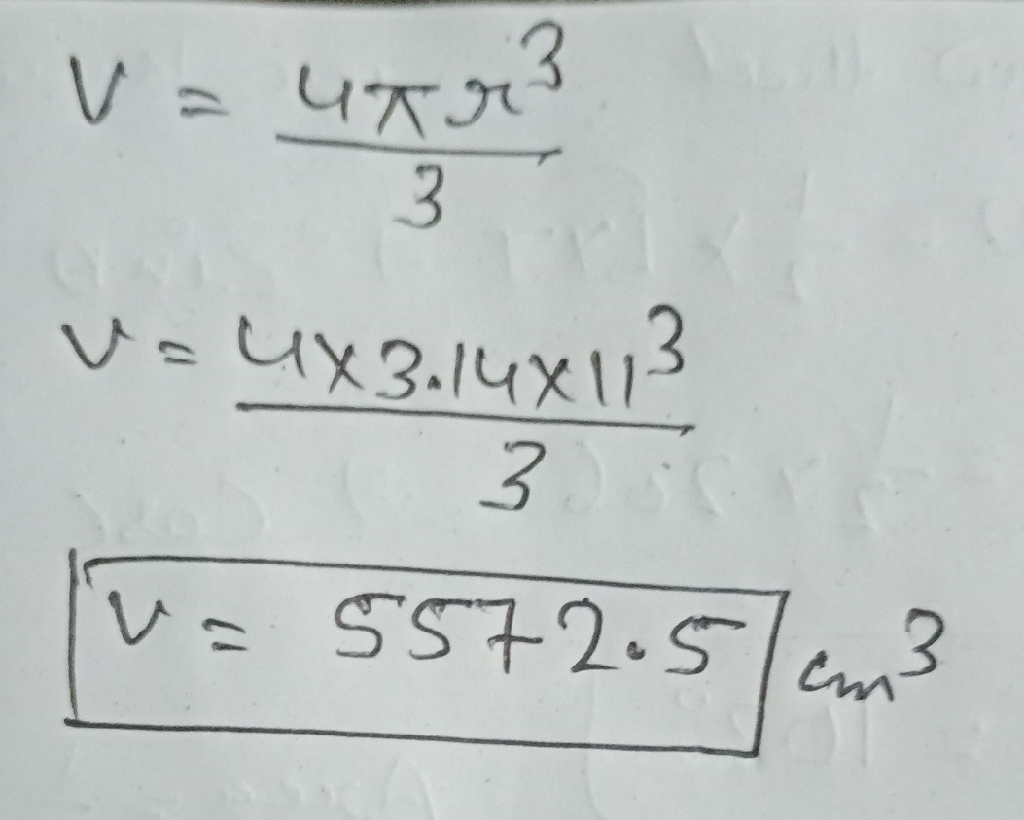 V = 4πr³
3
V = 4×3.14×11³
3
V = 5572.5 cm³